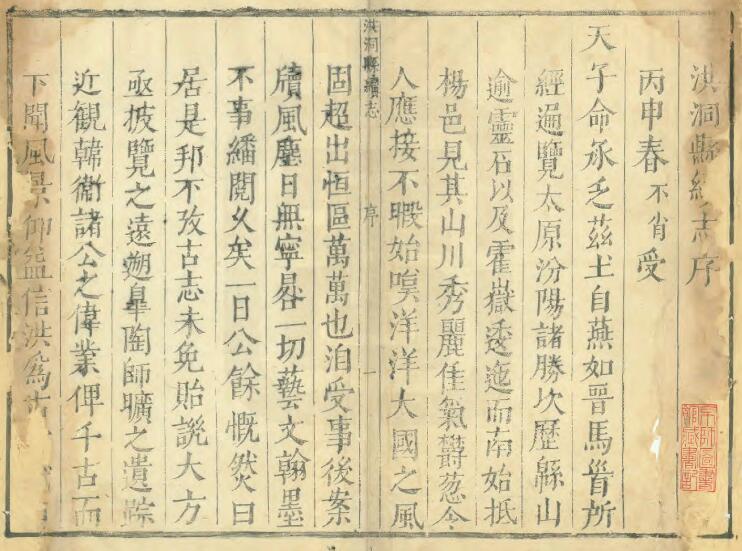 洪洞縣續志序
丙申春不省受
天子命承乏茲土自燕如晉馬首所
經遍覽太原汾陽諸勝次歷綿山
逾靈石以及霍嶽逶迤而南始抵
楊邑見其山川秀麗佳氣欝葱令
人應接不暇始嘆洋洋大國之風
固超出恒區萬萬也洎受事後案
牘風塵日無寧晷一切藝文翰墨
不事繙閱久矣一日公餘慨然曰
居是邦不攷古志未免貽誚大方
亟披覽之遠遡皐陶師曠之遺踪
近觀韓衛諸公之偉業俾千古而
下聞風景仰益信洪爲古
洪洞縣續志
序
一